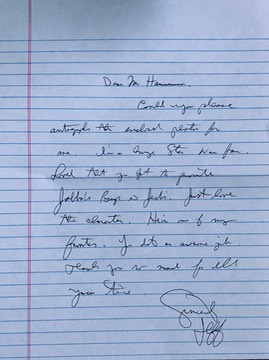 Dear Mr
Could you please
autograph the enclosed photo for
me. I'm a huge Star Wars fan.
Loved that you got to
Jabba's in Jedi. Just love
the character. He's one of my
favorites. You did an awesome job
Thank you so much for all
your time
Sincerely
Jeff